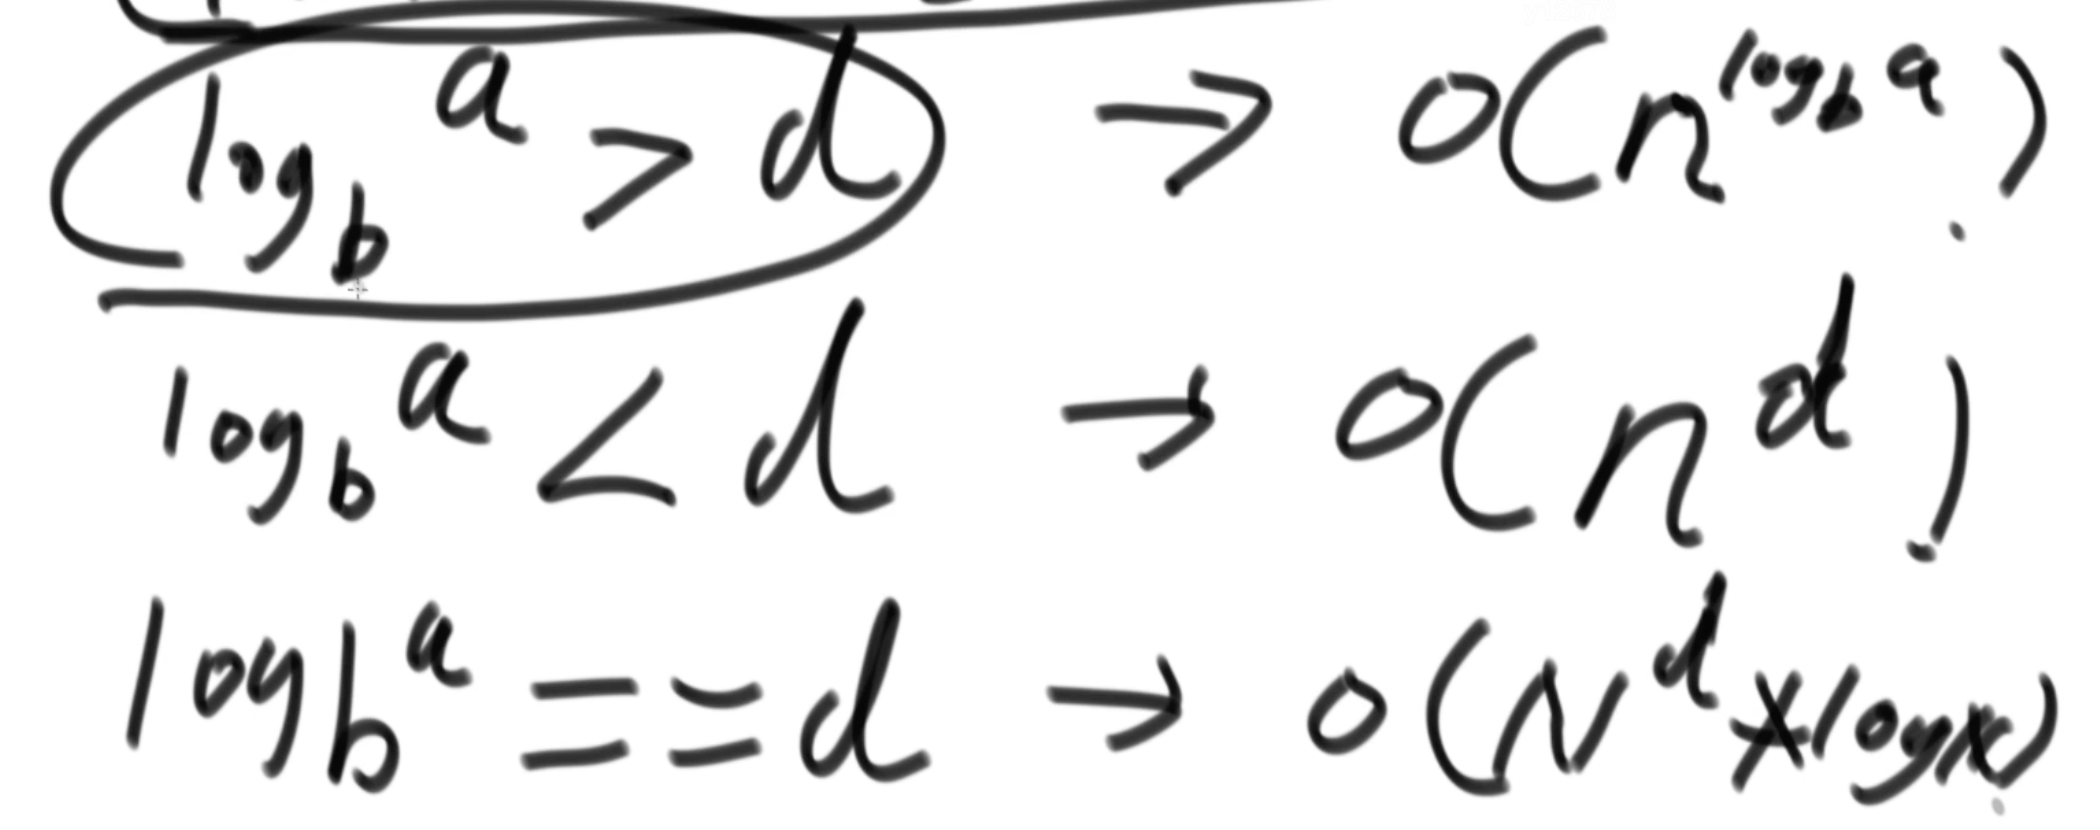 log_b^a > d → O(n^(log_b^a))
log_b^a < d → O(n^d)
log_b^a == d → O(N^d * logN)